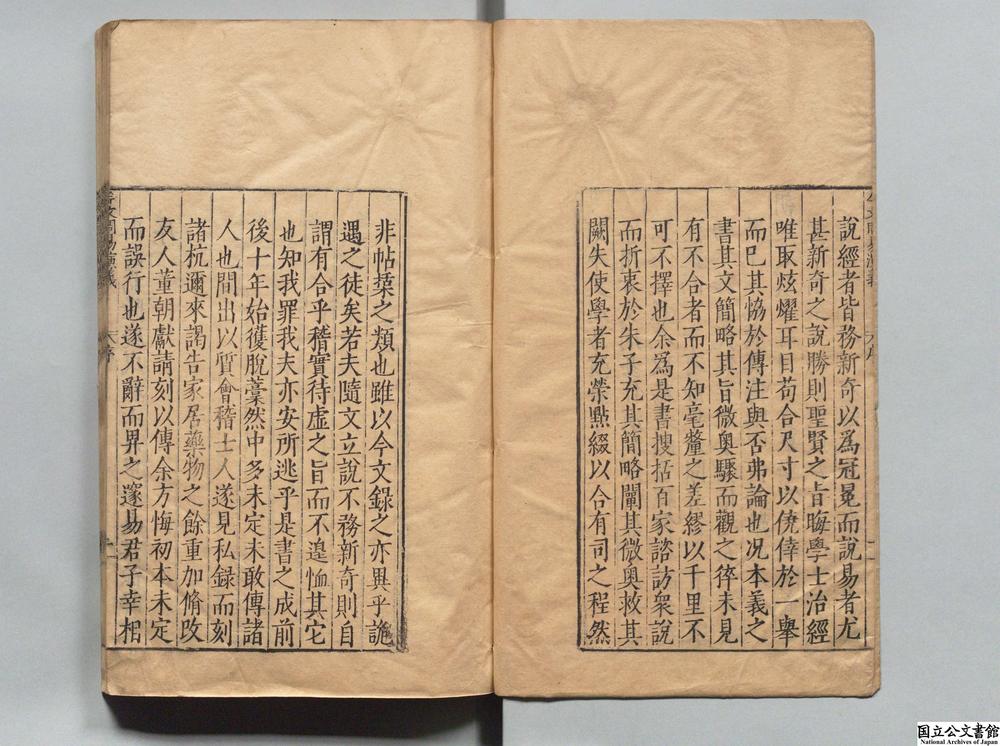 說經者皆務新奇以爲冠冕而說易者尤
甚新奇之說勝則聖賢之旨晦學士治經
唯取炫燿耳目苟合尺寸以僥倖於一舉
而已其恊於傳注與否弗論也况本義之
書其文簡略其旨微奥驟而觀之徃未見
有不合者而不知毫釐之差繆以千里不
可不擇也余爲是書搜括百家諮訪衆說
而折衷於朱子充其簡略闡其微奥救其
闕失使學者充榮點綴以合有司之程然
非帖奘之類也雖以今文錄之亦異乎詭
遇之徒矣若夫隨文立說不務新奇則自
謂有合乎稽實待虛之旨而不遑恤其它
也知我罪我夫亦安所逃乎是書之成前
後十年始獲脫藁然中多未定未敢傳諸
人也間出以質會稽士人遂見私録而刻
諸杭邇來謁告家居藥物之餘重加脩改
友人董朝獻請刻以傳余方悔初本未定
而誤行也遂不辭而畀之邃易君子幸梠
国立公文書館
National Archives of Japan